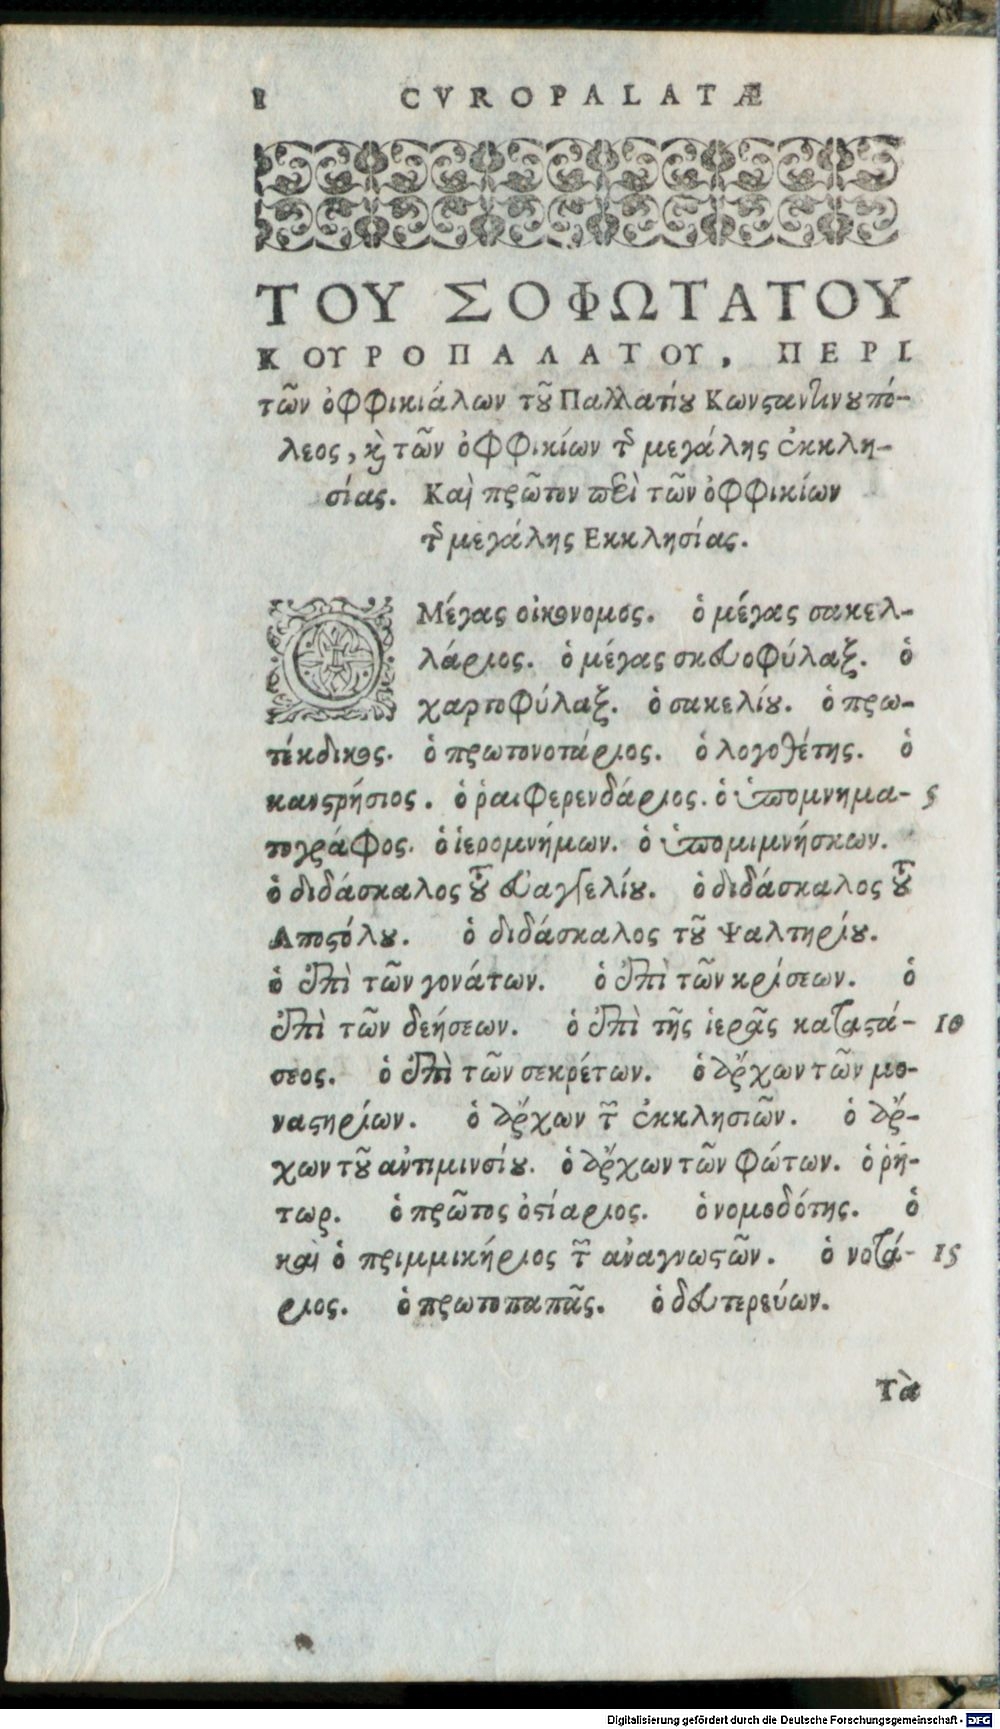 I CVROPALATÆ
ΤΟΥ ΣΟΦΩΤΑΤΟΥ
ΚΟΥΡΟΠΑΛΑΤΟΥ, ΠΕΡΙ
τῶν ὀφφικιάλων τοῦ Παλλατίου Κωνσταντινουπό-
λεος, καὶ τῶν ὀφφικίων τῆς μεγάλης ἐκκλη-
σίας. Καὶ πρῶτον περὶ τῶν ὀφφικίων
τῆς μεγάλης Εκκλησίας.
Ο Μέγας οἰκονομος. ὁ μέγας σακελ-
λάριος. ὁ μέγας σκευοφύλαξ. ὁ
χαρτοφύλαξ. ὁ σακελίου. ὁ πρω-
τέκδικος. ὁ πρωτονοτάριος. ὁ λογοθέτης. ὁ
κανστρήσιος. ὁ ῥαιφερενδάριος. ὁ ὑπομνημα- 5
τογράφος. ὁ ἱερομνήμων. ὁ ὑπομιμνήσκων.
ὁ διδάσκαλος τοῦ εὐαγγελίου. ὁ διδάσκαλος τοῦ
Αποστόλου. ὁ διδάσκαλος τοῦ Ψαλτηρίου.
ὁ ἐπὶ τῶν γονάτων. ὁ ἐπὶ τῶν κρίσεων. ὁ
ἐπὶ τῶν δεήσεων. ὁ ἐπὶ τῆς ἱερᾶς καταστά- 10
σεος. ὁ ἐπὶ τῶν σεκρέτων. ὁ ἄρχων τῶν μο-
ναστηρίων. ὁ ἄρχων τῶν ἐκκλησιῶν. ὁ ἄρ-
χων τοῦ αὐτιμινσίου. ὁ ἄρχων τῶν φώτων. ὁ ῥή-
τωρ. ὁ πρῶτος ὀστίαριος. ὁ νομοδότης. ὁ
καὶ ὁ πριμμικήριος τῶν αναγνωστῶν. ὁ νοτά- 15
ριος. ὁ πρωτοπαπᾶς. ὁ δευτερεύων.
Τὰ
Digitalisierung gefördert durch die Deutsche Forschungsgemeinschaft - DFG